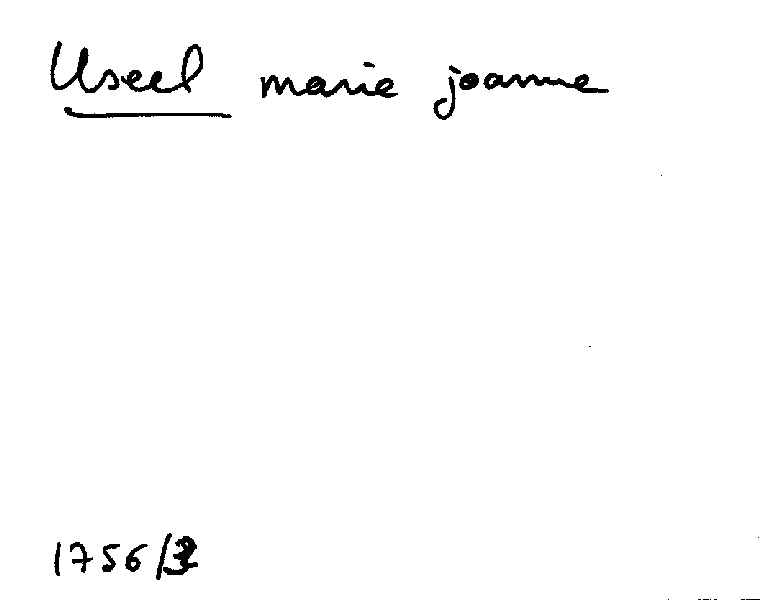 Useel marie joanne
1756/3